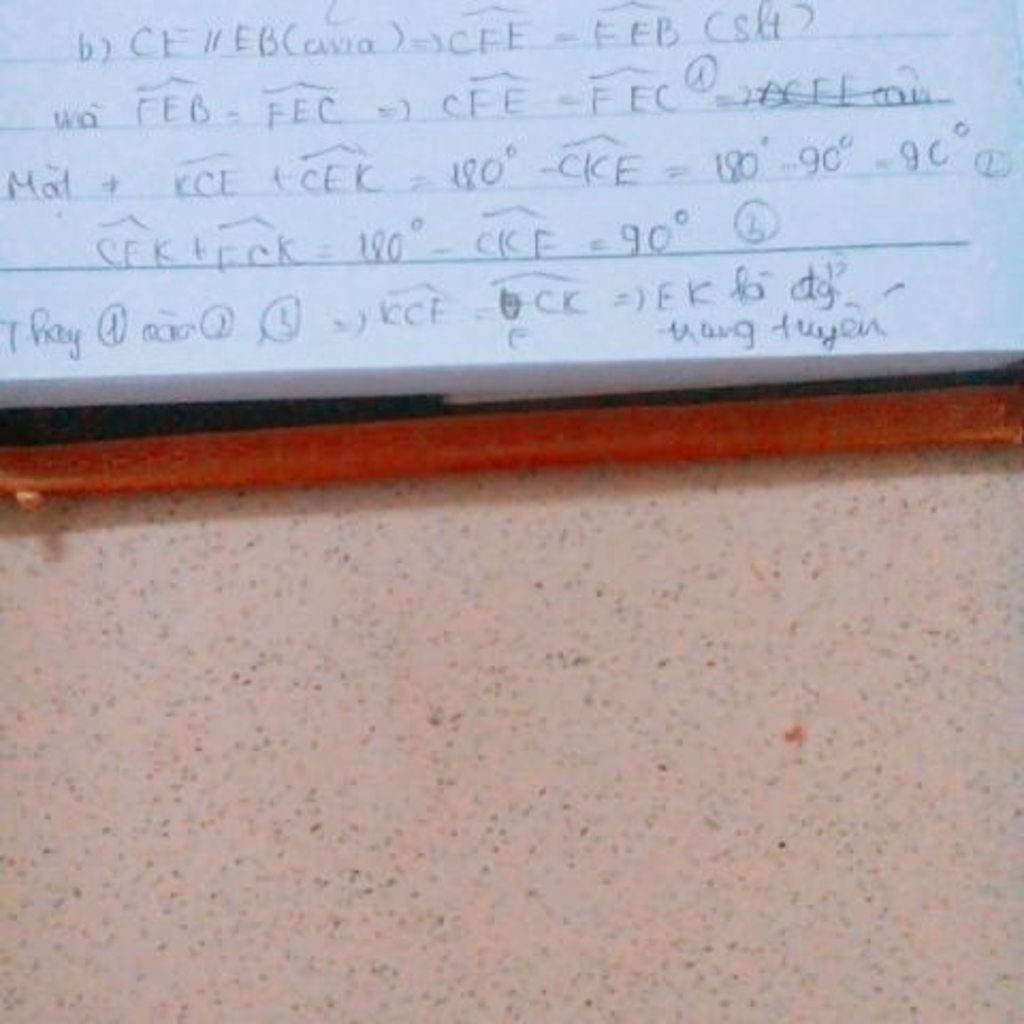 b) CF // EB (cưa) => \widehat{CFE} = \widehat{FEB} (slt)
mà \widehat{FEB} = \widehat{FEC} => \widehat{CFE} = \widehat{FEC} ①
Mặt + \widehat{KCE} + \widehat{CEK} = 180° - \widehat{CKE} = 180° - 90° = 90° ②
\widehat{CFK} + \widehat{FCK} = 180° - \widehat{CKF} = 90° ③
Thay ① vào ② ③ => \widehat{KCE} = \widehat{FCK} => EK là đg
trung tuyến